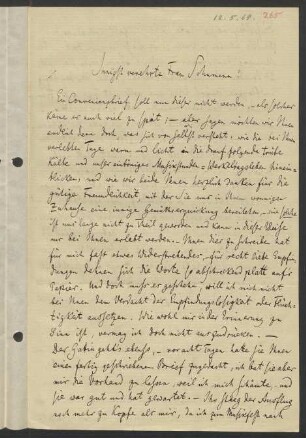 18. 5. 60. 235
Innigst verehrte Frau Schumann!
Ein Convenienzbrief soll nun dieser nicht werden, als solcher
käme er auch viel zu spät; — aber sagen möchten wir Ihnen
endlich denn doch, was sich von selbst versteht, wie die bei Ihnen
verlebten Tage warm und licht in die drauf folgende trübe
Kälte und unser einöniges
blicken, und wie wir beide Ihnen herzlich danken für die
gütige Freundlichkeit, mit der Sie uns in Ihrem wonnigen
Zuhause eine innige Gemüthserquickung bereiteten, wie solche
ist uns lange nicht zu Theil geworden und kann in dieser Weise
nur bei Ihnen erlebt werden. Ihnen dies zu schreiben hat
für mich fast etwas Widerstrebendes, für recht tiefe Empfin-
dungen dehnen sich die Worte so abschreckend platt auf's
Papier. Und doch muss es geschehen, will ich mich nicht
bei Ihnen dem Verdacht der Empfindungslosigkeit oder Flüch-
tigkeit aussetzen. Wie wohl mir in der Erinnerung zu
Sinn ist, vermag ich doch nicht auszudrücken. —
Der Gattin geht's ebenso, — vor acht Tagen hatte sie Ihnen
einen fertig geschriebenen Brief zugedacht, ich bat sie aber
mir die Vorhand zu lassen, weil ich mich schämte, und
sie war gut und hat gewartet. — Ihr stieg der Ausflug
noch mehr zu Kopfe als mir, da ich zum Musikfeste nach